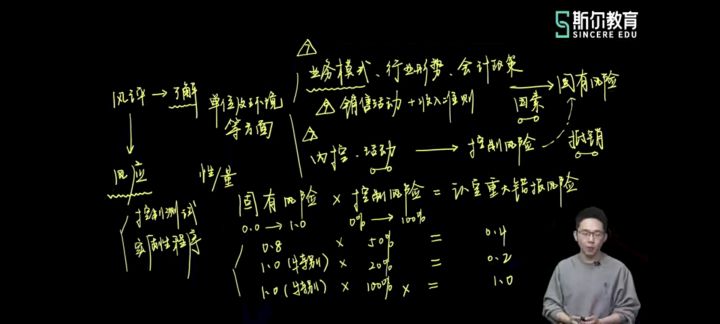 斯尔教育
SINCERE EDU
业务模式、行业形势、会计政策
风评 → 了解 单位及环境
等方面
销售活动 + 收入准则
→ 因素
固有风险
内控.活动 → 控制风险
抵销
风应
性/量
控制测试
实质性程序
固有风险 × 控制风险 = 认定重大错报风险
0.0 → 1.0 0% → 100%
0.8 × 50% = 0.4
1.0 (特别) × 20% = 0.2
1.0 (特别) × 100% × = 1.0